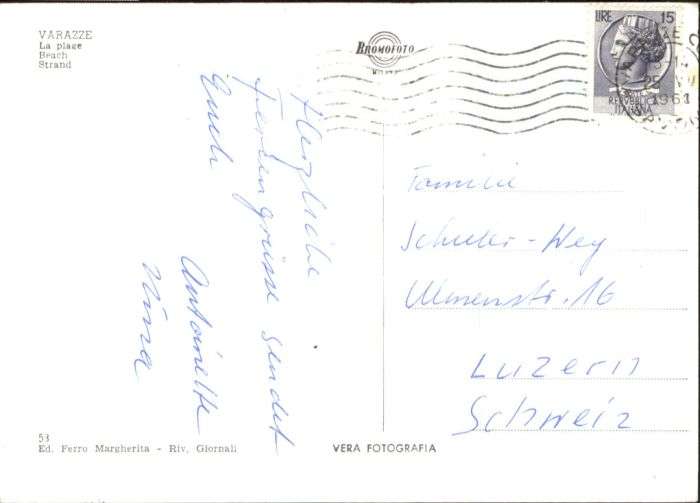 VARAZZE
La plage
Beach
Strand
BROMOFOTO
LIRE 15
REPVBBLICA
ITALIANA
1961
Herzliche
Feriengrüsse sendet
Euch
Antoinette
Nina
Familie
Schuler-Wey
Ulmenstr. 16
Luzern
Schweiz
53
Ed. Ferro Margherita - Riv. Giornali
VERA FOTOGRAFIA